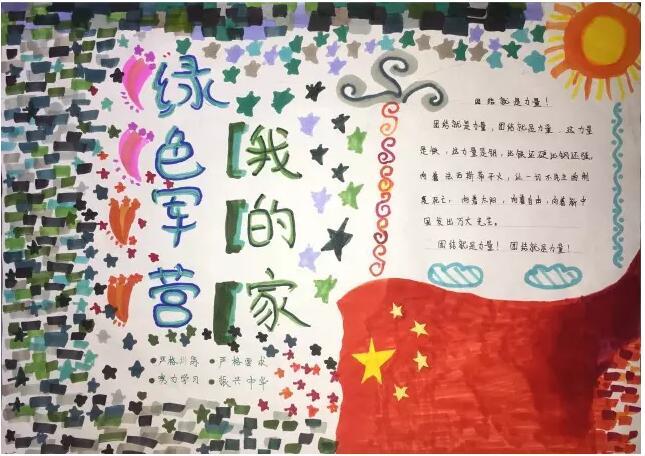 绿色军营
我的家
●严格训练 ●严格要求
●努力学习 ●振兴中华
团结就是力量!
团结就是力量,团结就是力量.这力量
是铁,这力量是钢,比铁还硬比钢还强,
向着法西斯蒂开火,让一切不民主的制
度死亡,向着太阳,向着自由,向着新中
国发出万丈光芒。
团结就是力量! 团结就是力量!